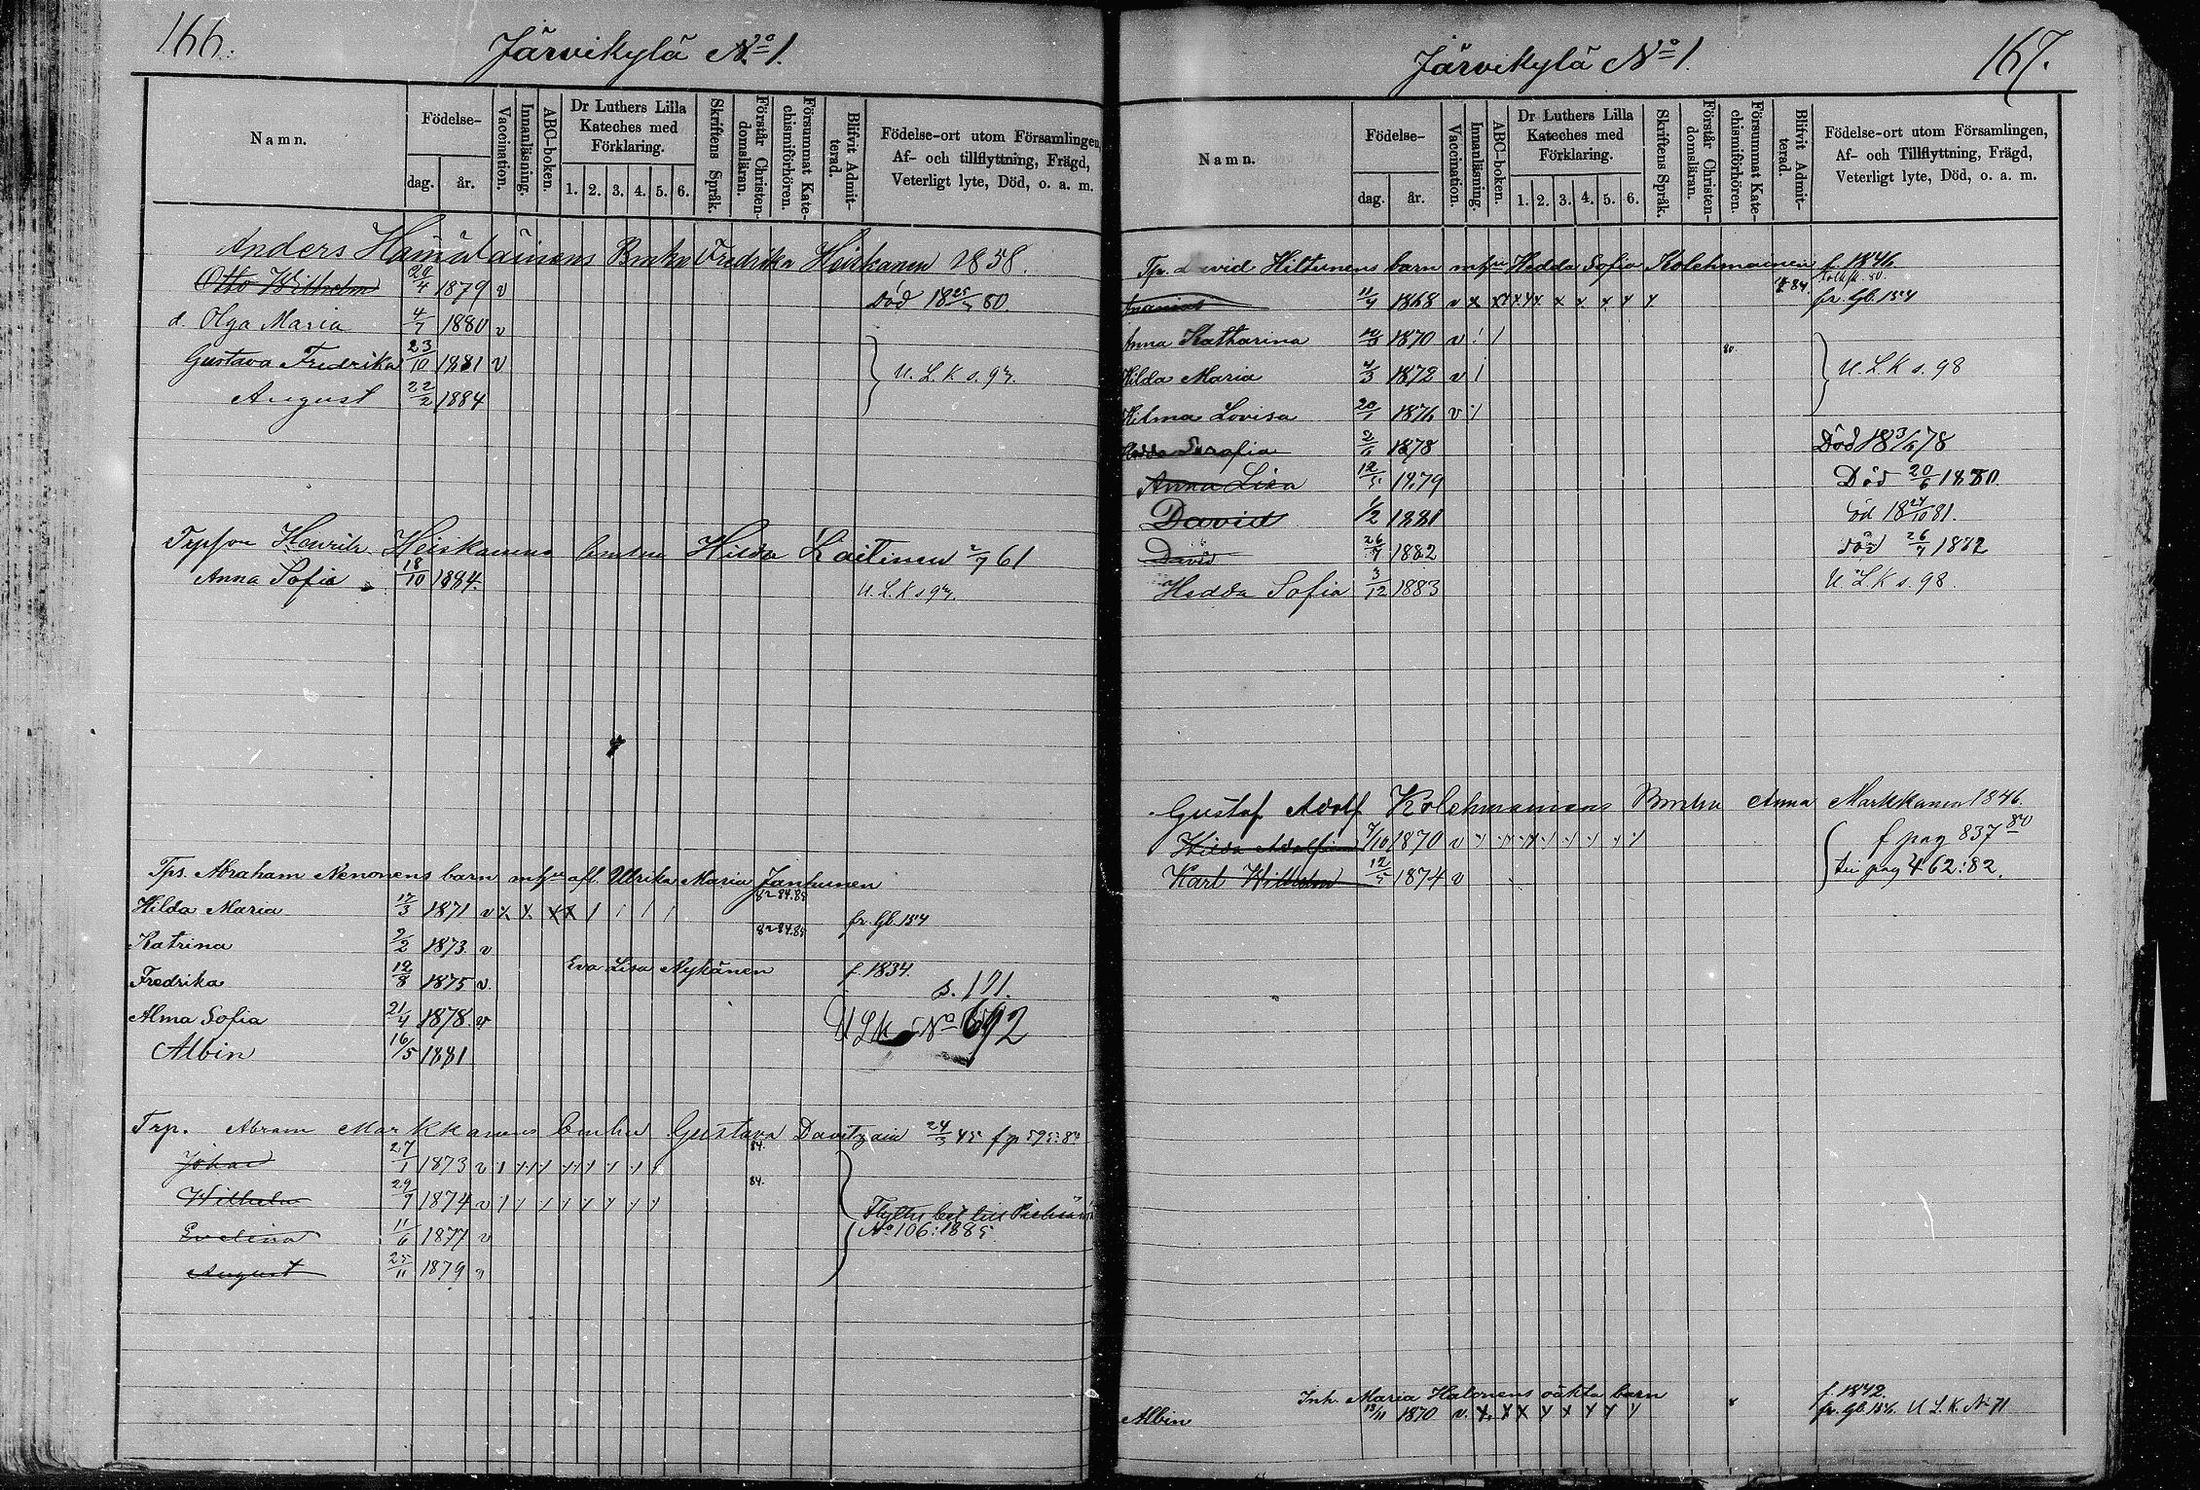 166.
Järvikylä No 1.
Namn.
Födelse-
dag. år.
Vaccination.
Innanläsning.
ABC-boken.
Dr Luthers Lilla Kateches med Förklaring.
1. 2. 3. 4. 5. 6.
Skriftens Språk.
Förstår Christendomsläran.
Försummat Katechismiförhören.
Blifvit Admitterad.
Födelse-ort utom Församlingen,
Af- och tillflyttning, Frägd,
Veterligt lyte, Död, o. a. m.
Anders Bmhu Fredrika Heiskanen 1858.
Otto Wilhelm 29/4 1879 v Död 18 25/7 80.
d. Olga Maria 4/7 1880 v
Gustava Fredrika 23/10 1881 v U. L. K s. 97.
August 22/2 1884
Henrik Heiskanens bmhu Hilda Laitinen 2/7 61
Anna Sofia 18/10 1884. U. L. K s 97.
Tps. Abraham Nenonens barn m hu afl. Ulrika Maria Janhunen
Hilda Maria 17/3 1871 v x x x x / / / / 82 84.85 fr. Gb. 154
Katrina 9/2 1873. v 82 84.85
Eva Lisa Nykänen f. 1834.
Fredrika 12/8 1875 v. s. 171.
Alma Sofia 21/4 1878. v U L K No 692
Albin 16/5 1881
Trp. Abram Markkanens bmhu Gustava Davitzain 24/3 45
Johan 27/1 1873 v 84.
Wilhelm 29/9 1874 v 84.
Evelina 11/6 1877 v
August 25/11 1879 v
Flyttn. bet till
No 106: 1885.
167.
Järvikylä No 1.
Namn.
Födelse-
dag. år.
Vaccination.
Innanläsning.
ABC-boken.
Dr Luthers Lilla Kateches med Förklaring.
1. 2. 3. 4. 5. 6.
Skriftens Språk.
Förstår Christendomsläran.
Försummat Katechismiförhören.
Blifvit Admitterad.
Födelse-ort utom Församlingen,
Af- och Tillflyttning, Frägd,
Veterligt lyte, Död, o. a. m.
Tp. david Hiltunens barn m hu Hedda Sofia Kolehmainen f. 1846.
11/9 1868 v x x x x x x x x x x fr. Gb. 154
Anna Katharina 1870 v / / 80.
Hilda Maria 4/3 1872 v / U. L. K s. 98
Hilma Lovisa 20/1 1876 v /
Hedda Serafia 2/6 1878 Död 18 3/6 78
Anna Lisa 12/5 1879 Död 20/6 1880.
David 1/2 1881 öd 18 24/10 81.
David 26/7 1882 död 26/7 1882
Hedda Sofia 3/12 1883 U. L. K s. 98.
Gustaf Adolf Kolehmainens Bmhu Anna Markkanen 1846.
Hilda Adolfina 7/10 1870 v f pag 837 80
Karl Wilhelm 12/5 1874 v till pag 462: 82.
Inh. Maria Halonens oäkta barn f. 1842.
Albin 13/11 1870 v. x x x x x x x x 8 fr. gb. U. L. K. No 71